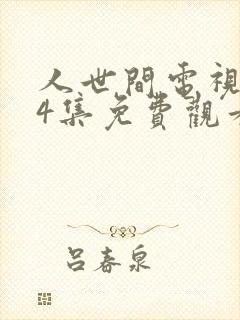 人世間電視
4集免費觀
呂春泉